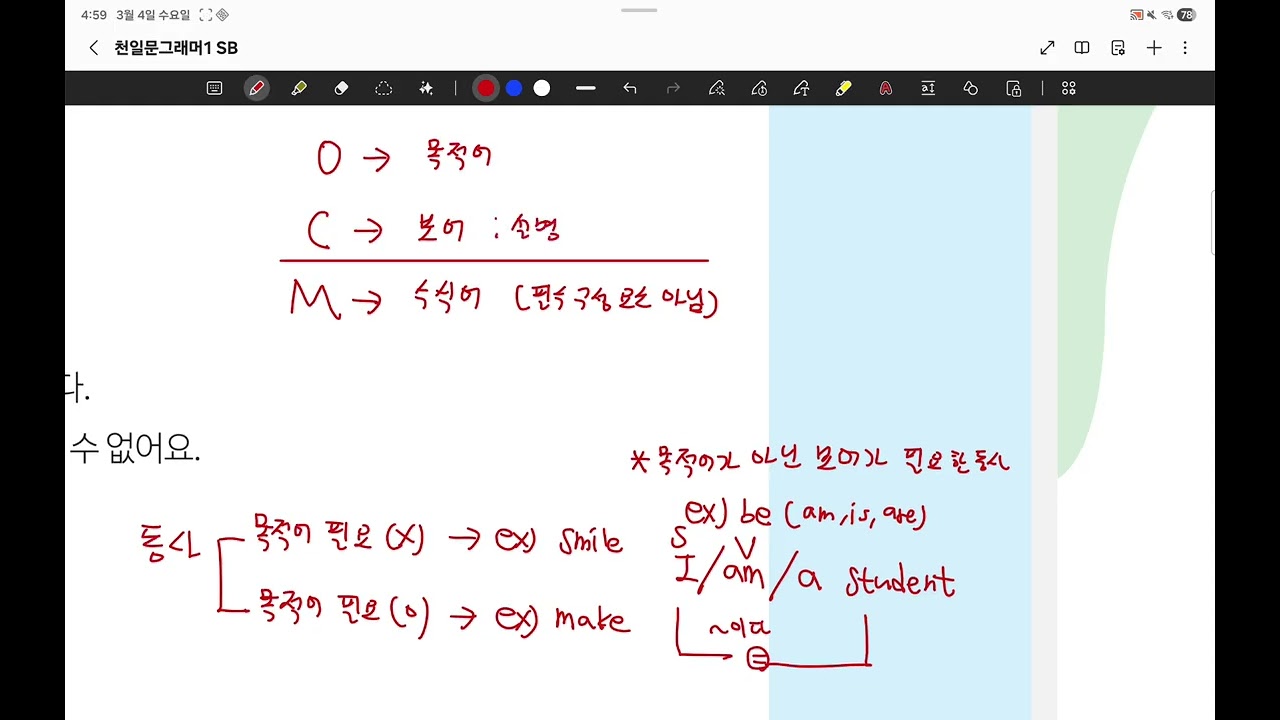 4:59 3월 4일 수요일
78
천일문그래머1 SB
O → 목적어
C → 보어 : 설명
M → 수식어 (필수 구성 요소 아님)
다.
수 없어요.
* 목적어가 아닌 보어가 필요한 동사
ex) be (am, is, are)
동사
목적어 필요 (X) → ex) smile
목적어 필요 (O) → ex) make
S V
I / am / a student
~이다
=